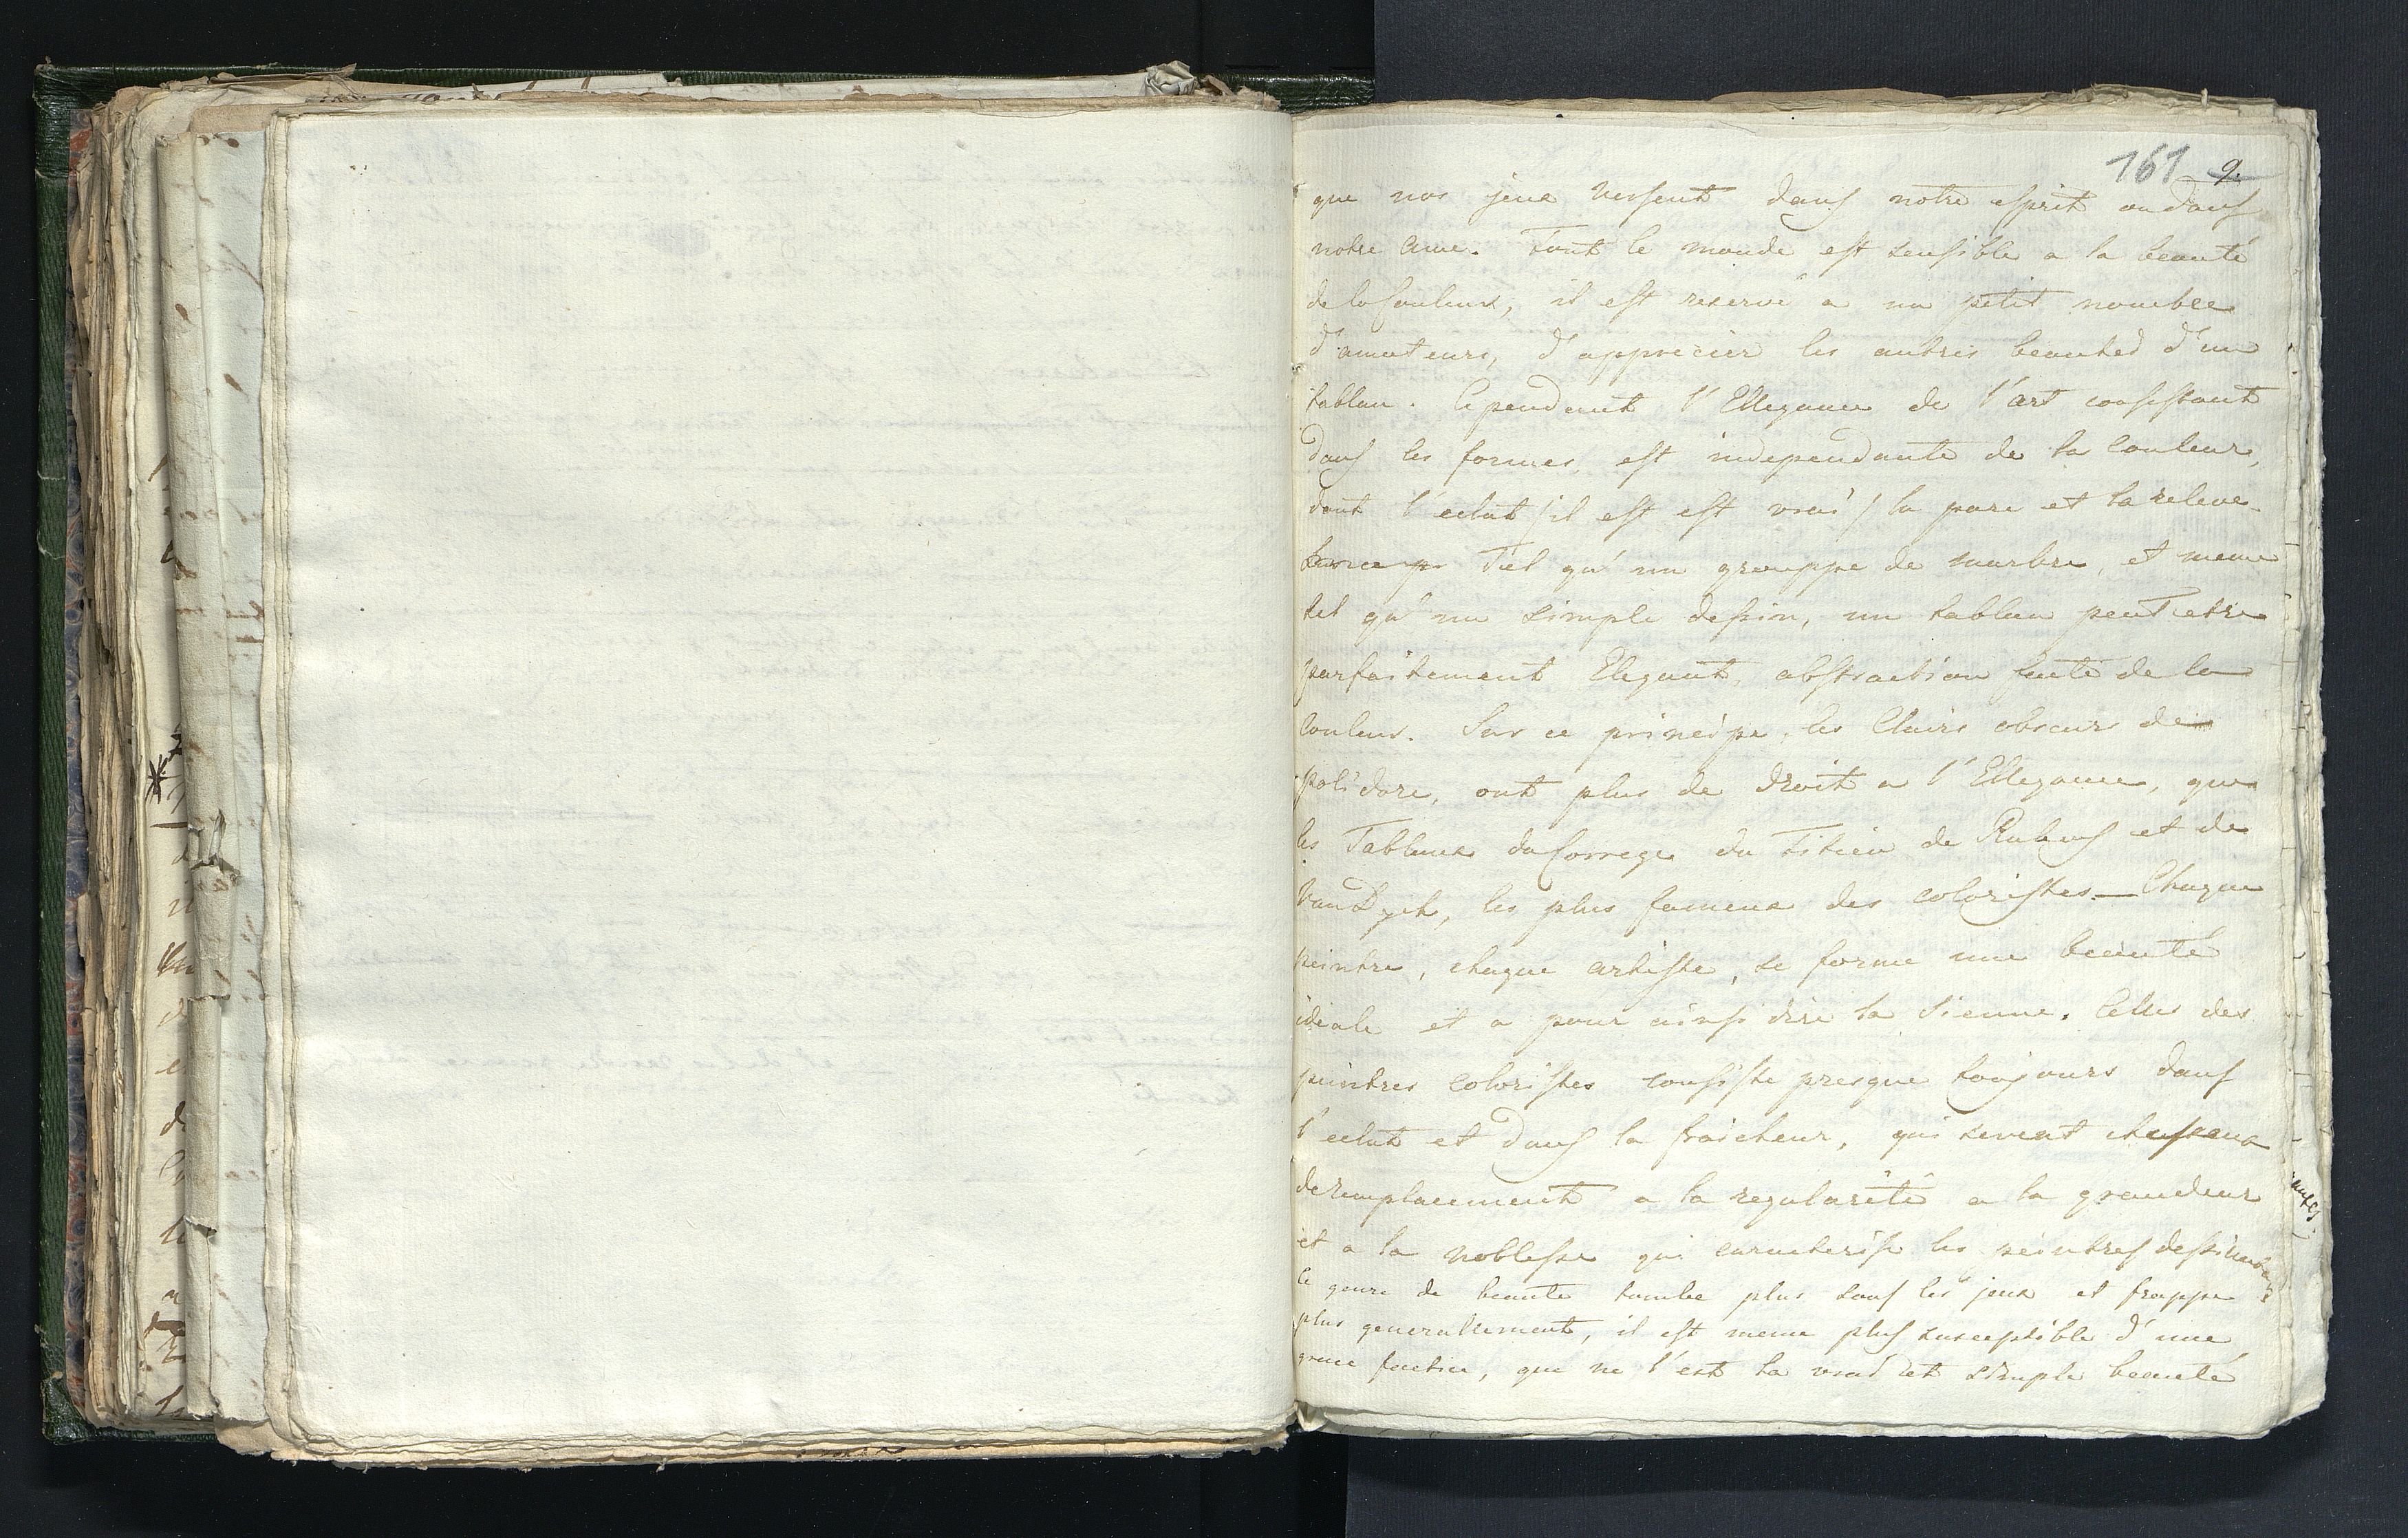 161 9.
que nos jeux versent dans notre esprit ou dans
notre ame. Tout le monde est sensible a la beauté
de la Couleur, il est reservé a un petit nombre
d'amateurs, d'apprecier les autres beautes d'un
tablau. Cependant l'Ellegance de l'art consistant
dans les formes, est independante de la Couleur,
dont l'eclat / il est est vrai / la pare et la releve.
Tel qu'un grouppe de marbre, et meme
tel qu'un simple dessin, un tablau peut etre
parfaitement Elegant, abstraction faite de la
couleur. Sur ce principe, les Clairs obscurs de
polidore, ont plus de droit a l'Ellegance, que
les Tableaux du Correge du Titien de Rubens et de
Van Dyck, les plus fameux des coloristes — Chaque
peintre, chaque artiste, se forme une beauté
ideale et a pour ainsi dire la Sienne. Celle des
peintres coloristes consiste presque toujours dans
l'eclat et dans la fraicheur, qui servent chez eux
de remplacement a la regularité a la grandeur
et a la noblesse qui caracterise les peintres dessinateurs
Ce genre de beauté tombe plus sous les jeux et frappe
plus generallement, il est meme plus susceptible d'une
grace factice, que ne l'est la vrai et simple beauté